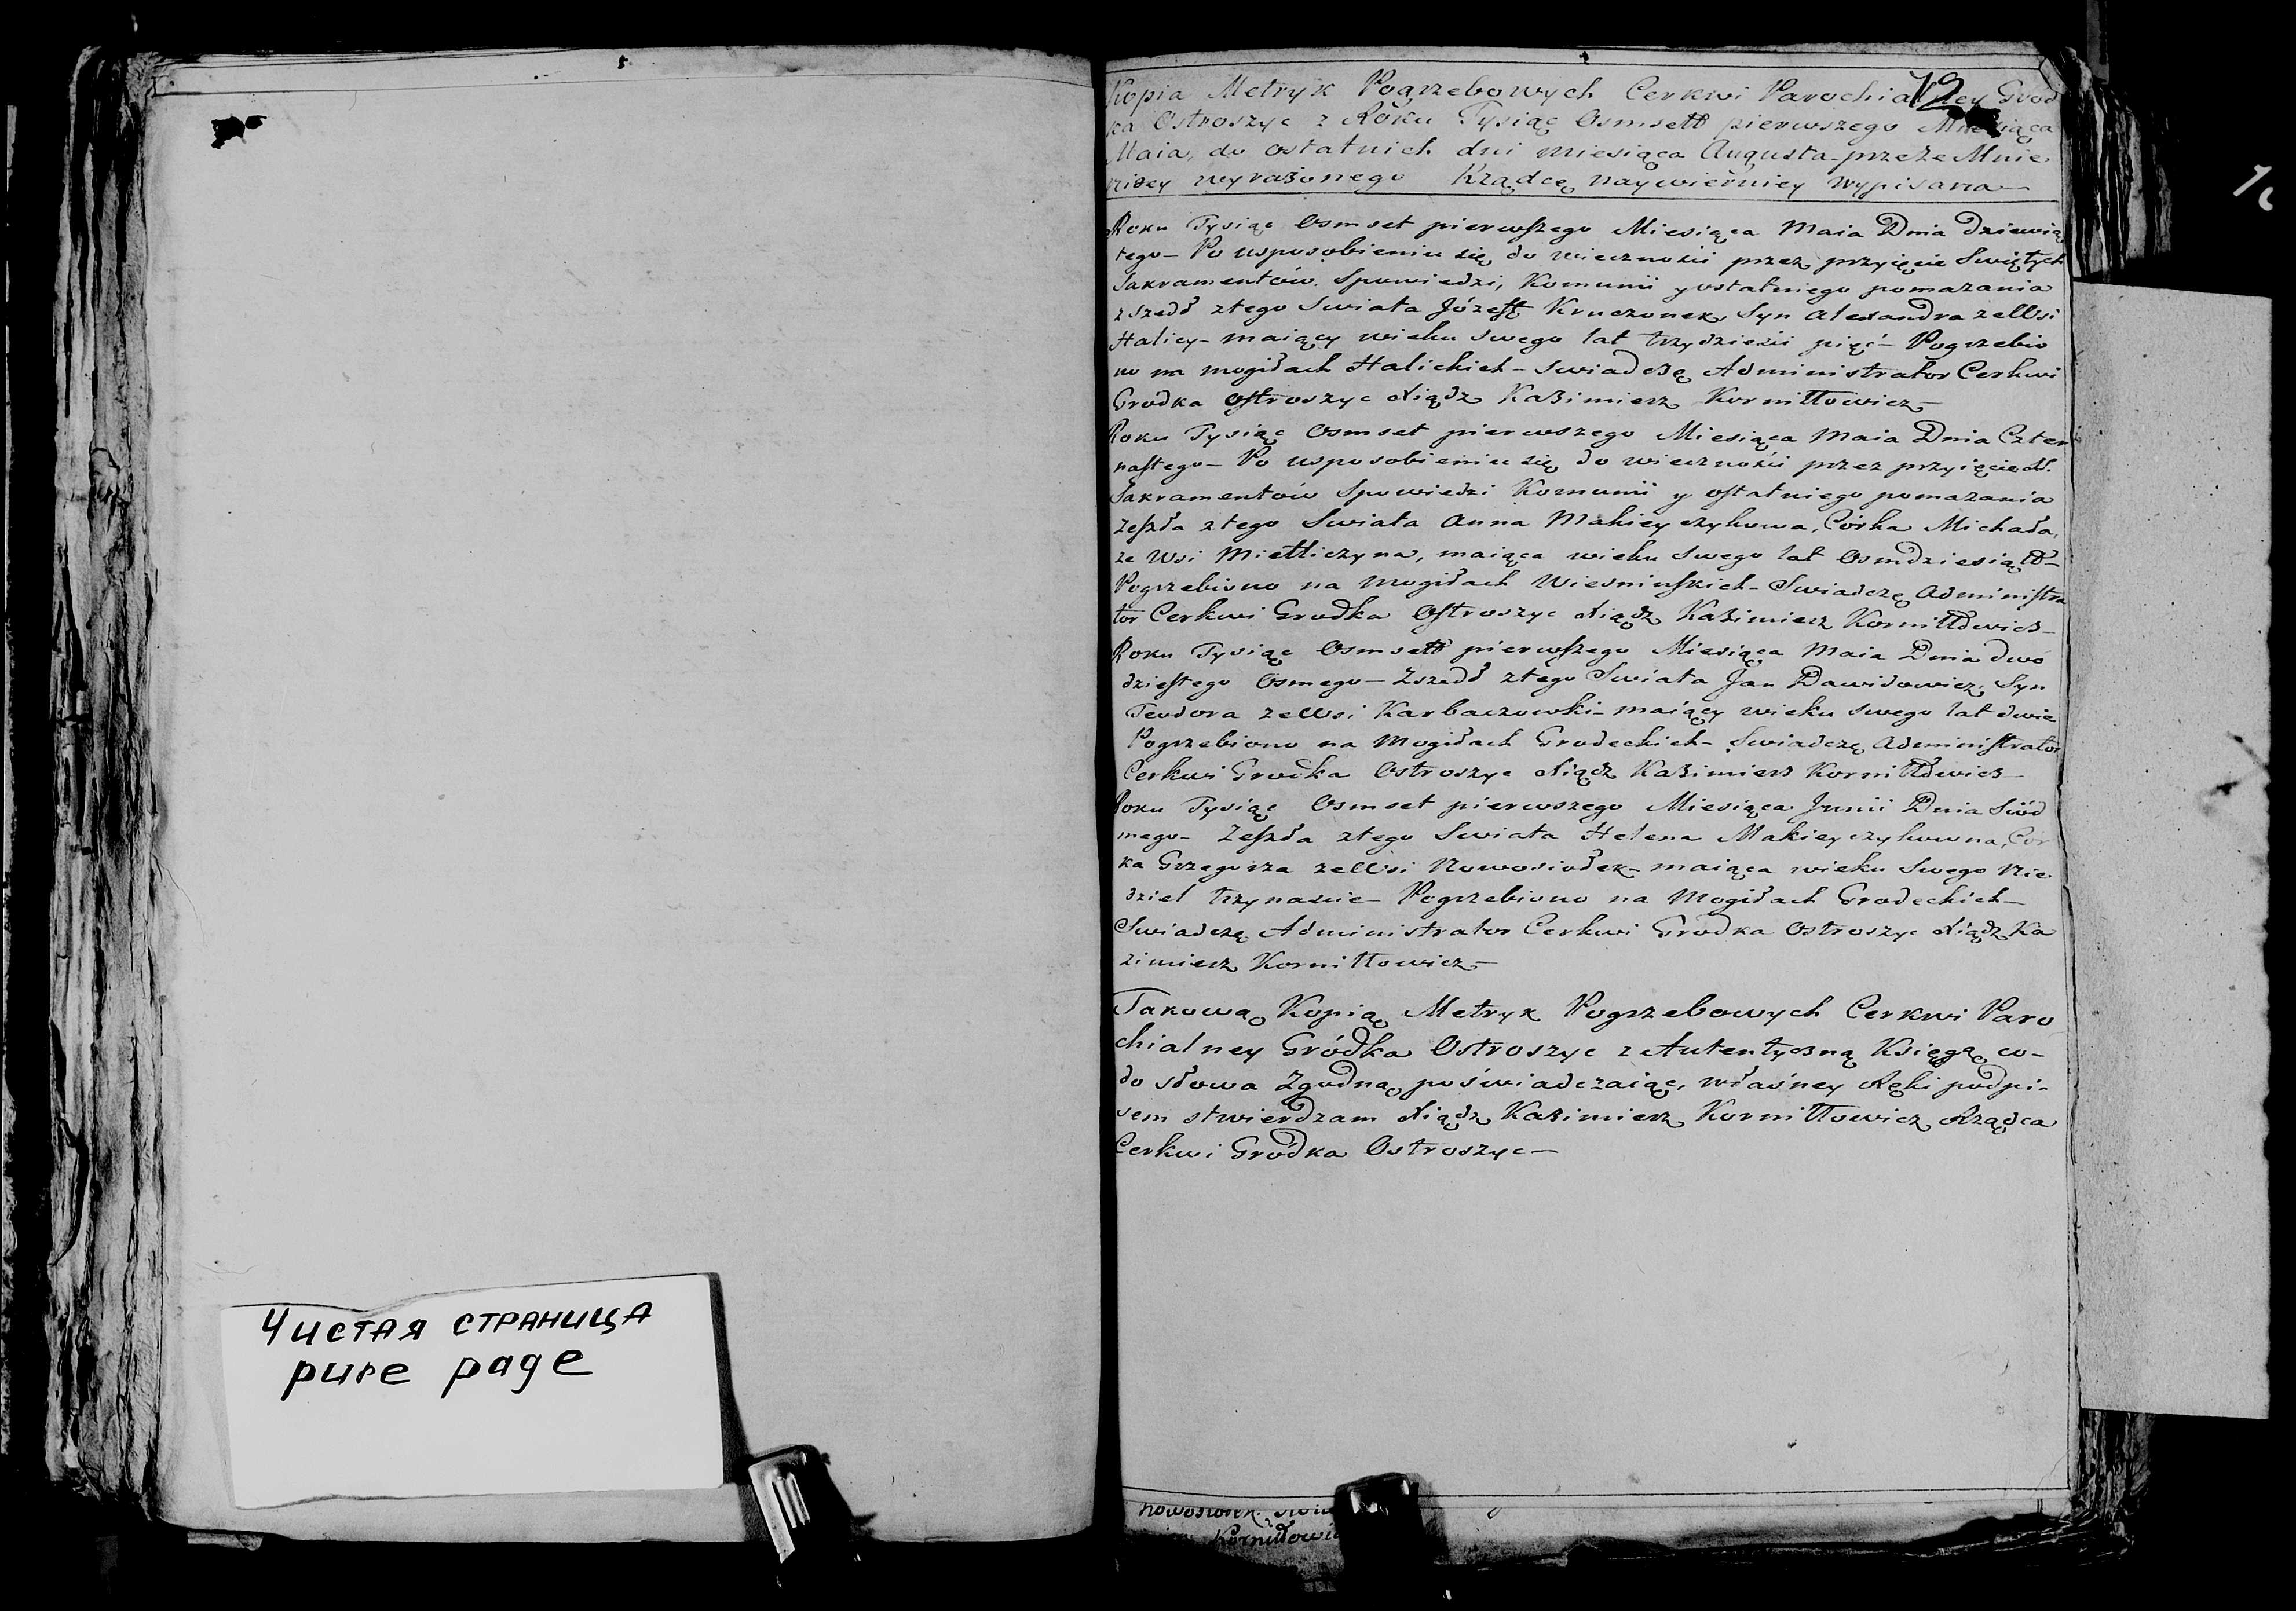 Чистая страница
pure page
Kopia Metryk Pogrzebowych Cerkwi Parochialney Grod
ka Ostroszyc z Roku Tysiąc Osmsett pierwszego Miesiąca
Maia, do ostatnich dni miesiąca Augusta przeze Mnie
niżey wyrażonego Rządcę naywierniey wypisana—
Roku Tysiąc Osmset pierwszego Miesiąca Maia Dnia dziewią
tego— Po usposobieniu się do wieczności przez przyięcie Swiętych
Sakramentów Spowiedzi, Komunii y ostatniego pomazania
zszedł z tego Swiata Józeff Kruczonek Syn Alexandra ze Wsi
Halicy— maiący wieku swego lat trzydzieści pięć— Pogrzebio
no na mogiłach Halickich— Swiadczę Administrator Cerkwi
Grodka Ostroszyc Xiądz Kazimierz Korniłłowicz—
Roku Tysiąc Osmset pierwszego Miesiąca Maia Dnia Czter
nastego— Po usposobieniu się do wieczności przez przyięcie SS.
Sakramentów Spowiedzi Komunii y ostatniego pomazania
zeszła z tego Swiata Anna Makieyczykowa, Córka Michała,
ze Wsi Mietliczyna, maiąca wieku swego lat Osmdziesiątt—
Pogrzebiono na Mogiłach Wiesnińskich— Swiadczę Administra
tor Cerkwi Grodka Ostroszyc Xiądz Kazimierz Korniłłowicz—
Roku Tysiąc Osmsett pierwszego Miesiąca Maia Dnia dwó
dziestego Osmego— Zszedł z tego Swiata Jan Dawidowicz, Syn
Teodora ze Wsi Karbaczowki— maiący wieku swego lat dwie
Pogrzebiono na Mogiłach Grodeckich— Swiadczę Administrator
Cerkwi Grodka Ostroszyc Xiądz Kazimierz Korniłłowicz—
Roku Tysiąc Osmset pierwszego Miesiąca Junii Dnia Siód
mego— Zeszła z tego Swiata Helena Makieyczykowna, Cor
ka Grzegorza ze Wsi Nowosiołek— maiąca wieku swego Nie
dziel trzynaście— Pogrzebiono na Mogiłach Grodeckich—
Swiadczę Administrator Cerkwi Grodka Ostroszyc Xiądz Ka
zimierz Korniłłowicz—
Takową Kopią Metryk Pogrzebowych Cerkwi Paro
chialney Gródka Ostroszyc z Autentyczną Księgą co—
do słowa Zgodną poświadczaiąc, własney Ręki podpi-
sem stwierdzam Xiądz Kazimierz Korniłłowicz Rządca
Cerkwi Gródka Ostroszyc—